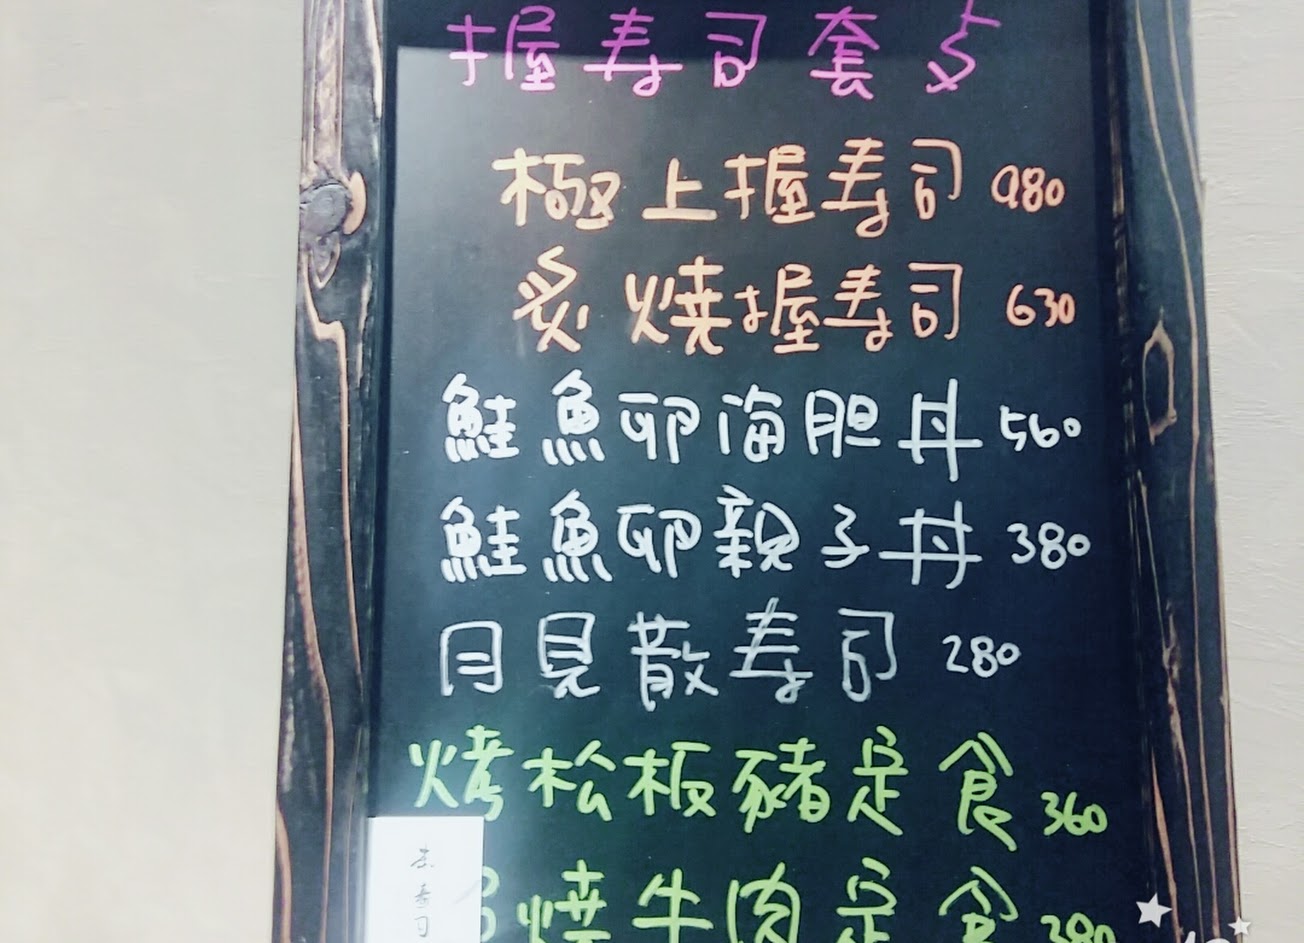 握寿司套
極上握寿司 980
炙燒握寿司 630
鮭魚卵海胆丼 560
鮭魚卵親子丼 380
月見散寿司 280
烤松板豬定食 360
燒牛肉定食 380